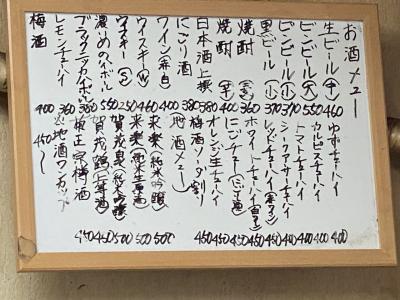 お酒メニュー
生ビール(中) 460
ビンビール(大) 550
ビンビール(小) 370
黒ビール(小) 370
焼酎(麦) 360
焼酎(芋) 400
日本酒上撰 380
にごり酒 380
ワイン(赤白) 400
ウイスキー(W) 460
ウイスキー(S) 250
濃いめのハイボール 550
ブラックニッカハイボール 380
レモンチューハイ 360
梅酒 400
ゆずチューハイ 400
カルピスチューハイ 400
トマトチューハイ
シークヮーサーチューハイ 450
レッドチューハイ(赤ワイン) 450
ホワイトチューハイ(白ワイン) 450
にごチュー(にごり酒) 450
オレンジ生チューハイ 450
梅酒ソーダ割り 450
地酒メニュー
来楽(純米吟醸) 500
来楽(純米生原酒) 500
賀茂泉(純米吟醸) 500
賀茂鶴 450
桜正宗梅酒 450
地酒ワンカップ 450〜